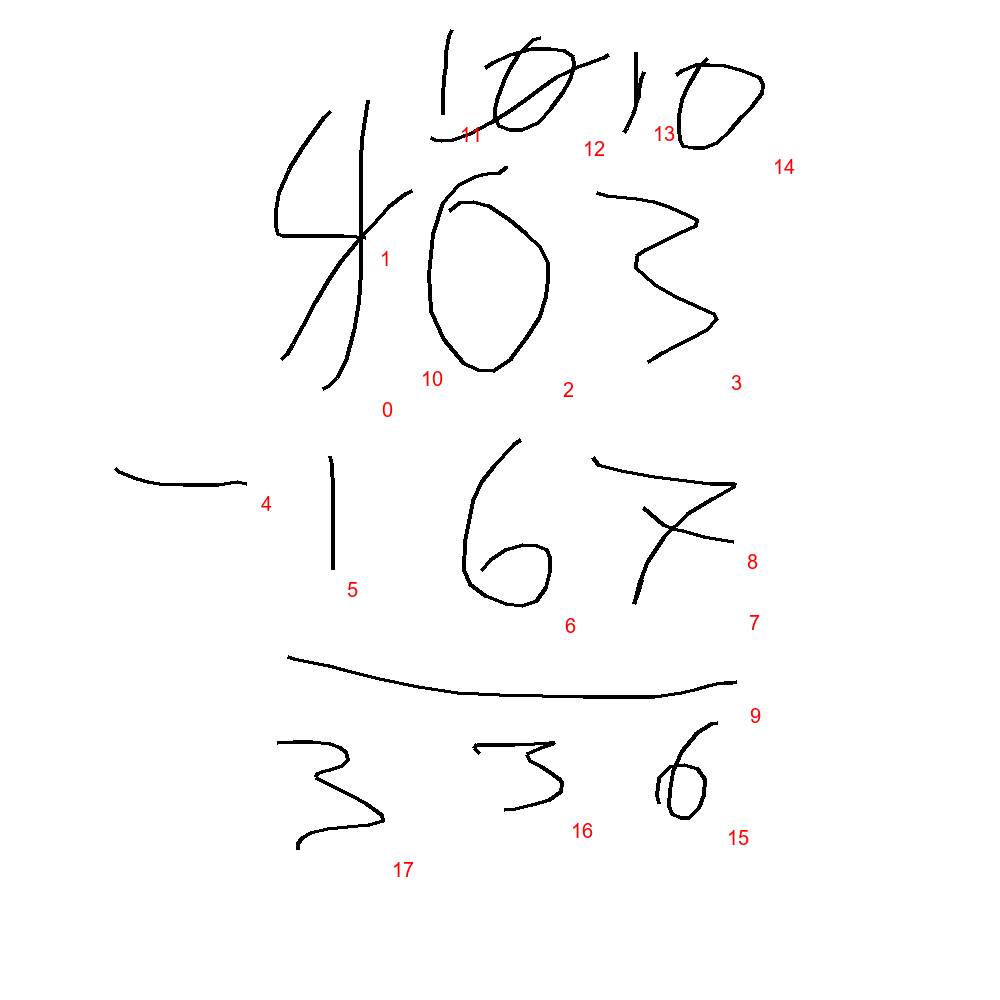 10 10
11 12 13 14
403
1
10 2 3
0
- 167
4 5 8
6 7
9
336
17 16 15